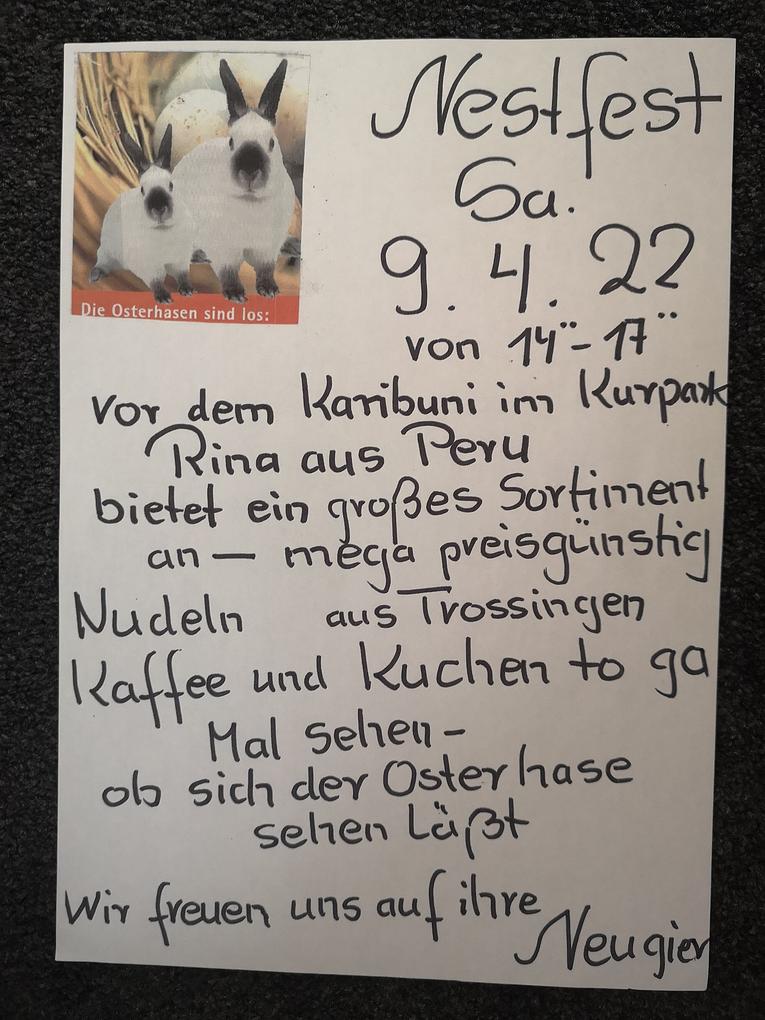 Nestfest
Sa.
9. 4. 22
von 14°° - 17°°
Die Osterhasen sind los:
vor dem Karibuni im Kurpark
Rina aus Peru
bietet ein großes Sortiment
an — mega preisgünstig
Nudeln aus Trossingen
Kaffee und Kuchen to ga
Mal sehen -
ob sich der Osterhase
sehen läßt
Wir freuen uns auf ihre
Neugier